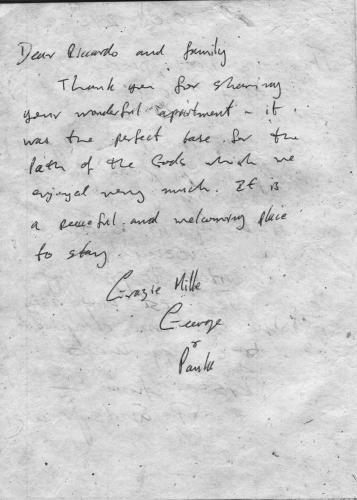 Dear Riccardo and family
Thank you for sharing
your wonderful apartment - it
was the perfect base for the
Path of the Gods which we
enjoyed very much. It is
a peaceful and welcoming place
to stay.
Grazie Mille
George
&